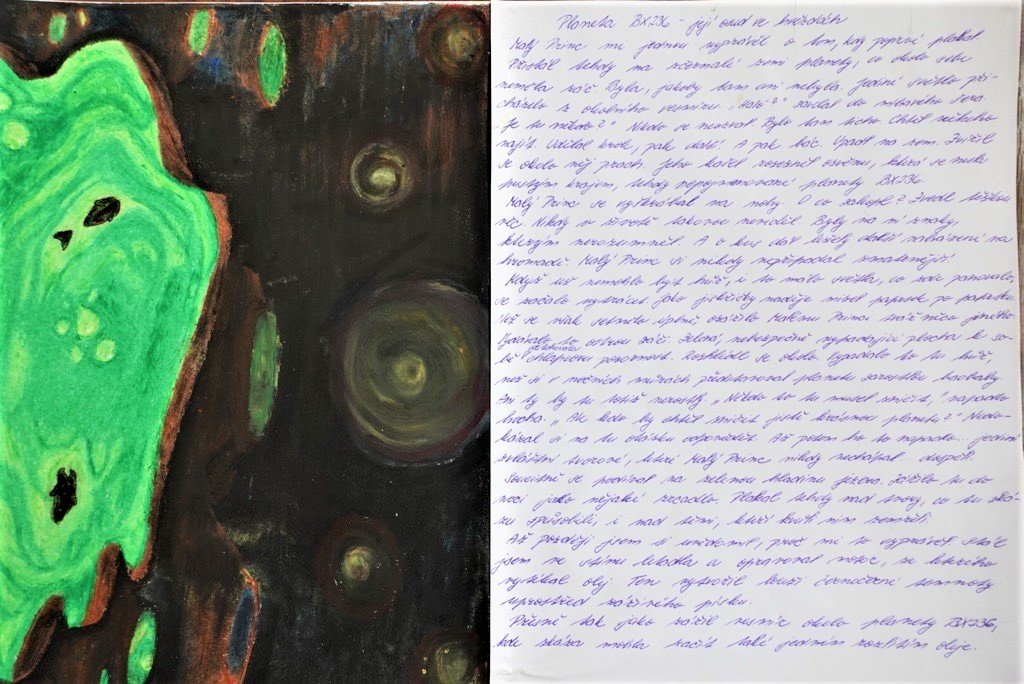 Planeta BX236 - její osud ve hvězdách
Malý Princ mi jednou vyprávěl o tom, kdy poprvé plakal
Přistál tehdy na zčernalé zemi planety, co okolo sebe
neměla zář. Byla, jakoby tam ani nebyla. Jediné světlo při-
cházelo z okolního vesmíru. „Haló?" zavolal do mlhavého šera.
„Je tu někdo?" Nikdo se neozval. Bylo tam ticho. Chtěl někoho
najít. Udělal krok, pak další. A pak bác. Upadl na zem. Zvířil
se okolo něj prach. Jeho kašel rozezněl ozvěnu, která se nesla
pustým krajem, tehdy nepojmenované planety BX236.
Malý Princ se vyškrábal na nohy. O co zakopl? Zvedl těžkou
věc. Nikdy v životě takovou neviděl. Byly na ní znaky,
kterým nerozuměl. A o kus dál ležely další naházené na
hromadě. Malý Princ si nikdy nepřipadal zmatenější.
Když už nemohlo být hůř, i to málo světla, co zde panovalo,
se začalo vytrácet jako jiskřičky naděje mizel paprsek po paprsku.
Než se však setmělo úplně, ozářilo Malému Princi tvář něco jiného
Vydávalo to ostrou zář. Zelená, nebezpečně vypadající plocha k so-
bě přitahovala chlapcovu pozornost. Rozhlédl se okolo. Vypadalo to tu hůř,
než si v nočních můrách představoval planetu zarostlou baobaby.
Ani ty by tu totiž nerostly. „Někdo to tu musel zničit," napadlo
hocha. „Ale kdo by chtěl zničit jistě krásnou planetu?" Nedo-
kázal si na tu otázku odpovědět. Až potom ho to napadlo.. jediní
zvláštní tvorové, které Malý Princ nikdy nechápal... dospělí.
Soucitně se podíval na zelenou hladinu jezera. Zářilo tu do
noci jako nějaké zrcadlo. Plakal tehdy nad tvory, co tu zká-
zu způsobili, i nad těmi, kteří kvůli nim zemřeli.
Až později jsem si uvědomil, proč mi to vyprávěl. Stál
jsem ve stínu letadla a opravoval motor, ze kterého
vytékal olej. Ten vytvořil louži černočerné temnoty
uprostřed zářivého písku.
Přesně tak jako zářil vesmír okolo planety BX236,
kde zkáza mohla začít také jedním rozlitím oleje.